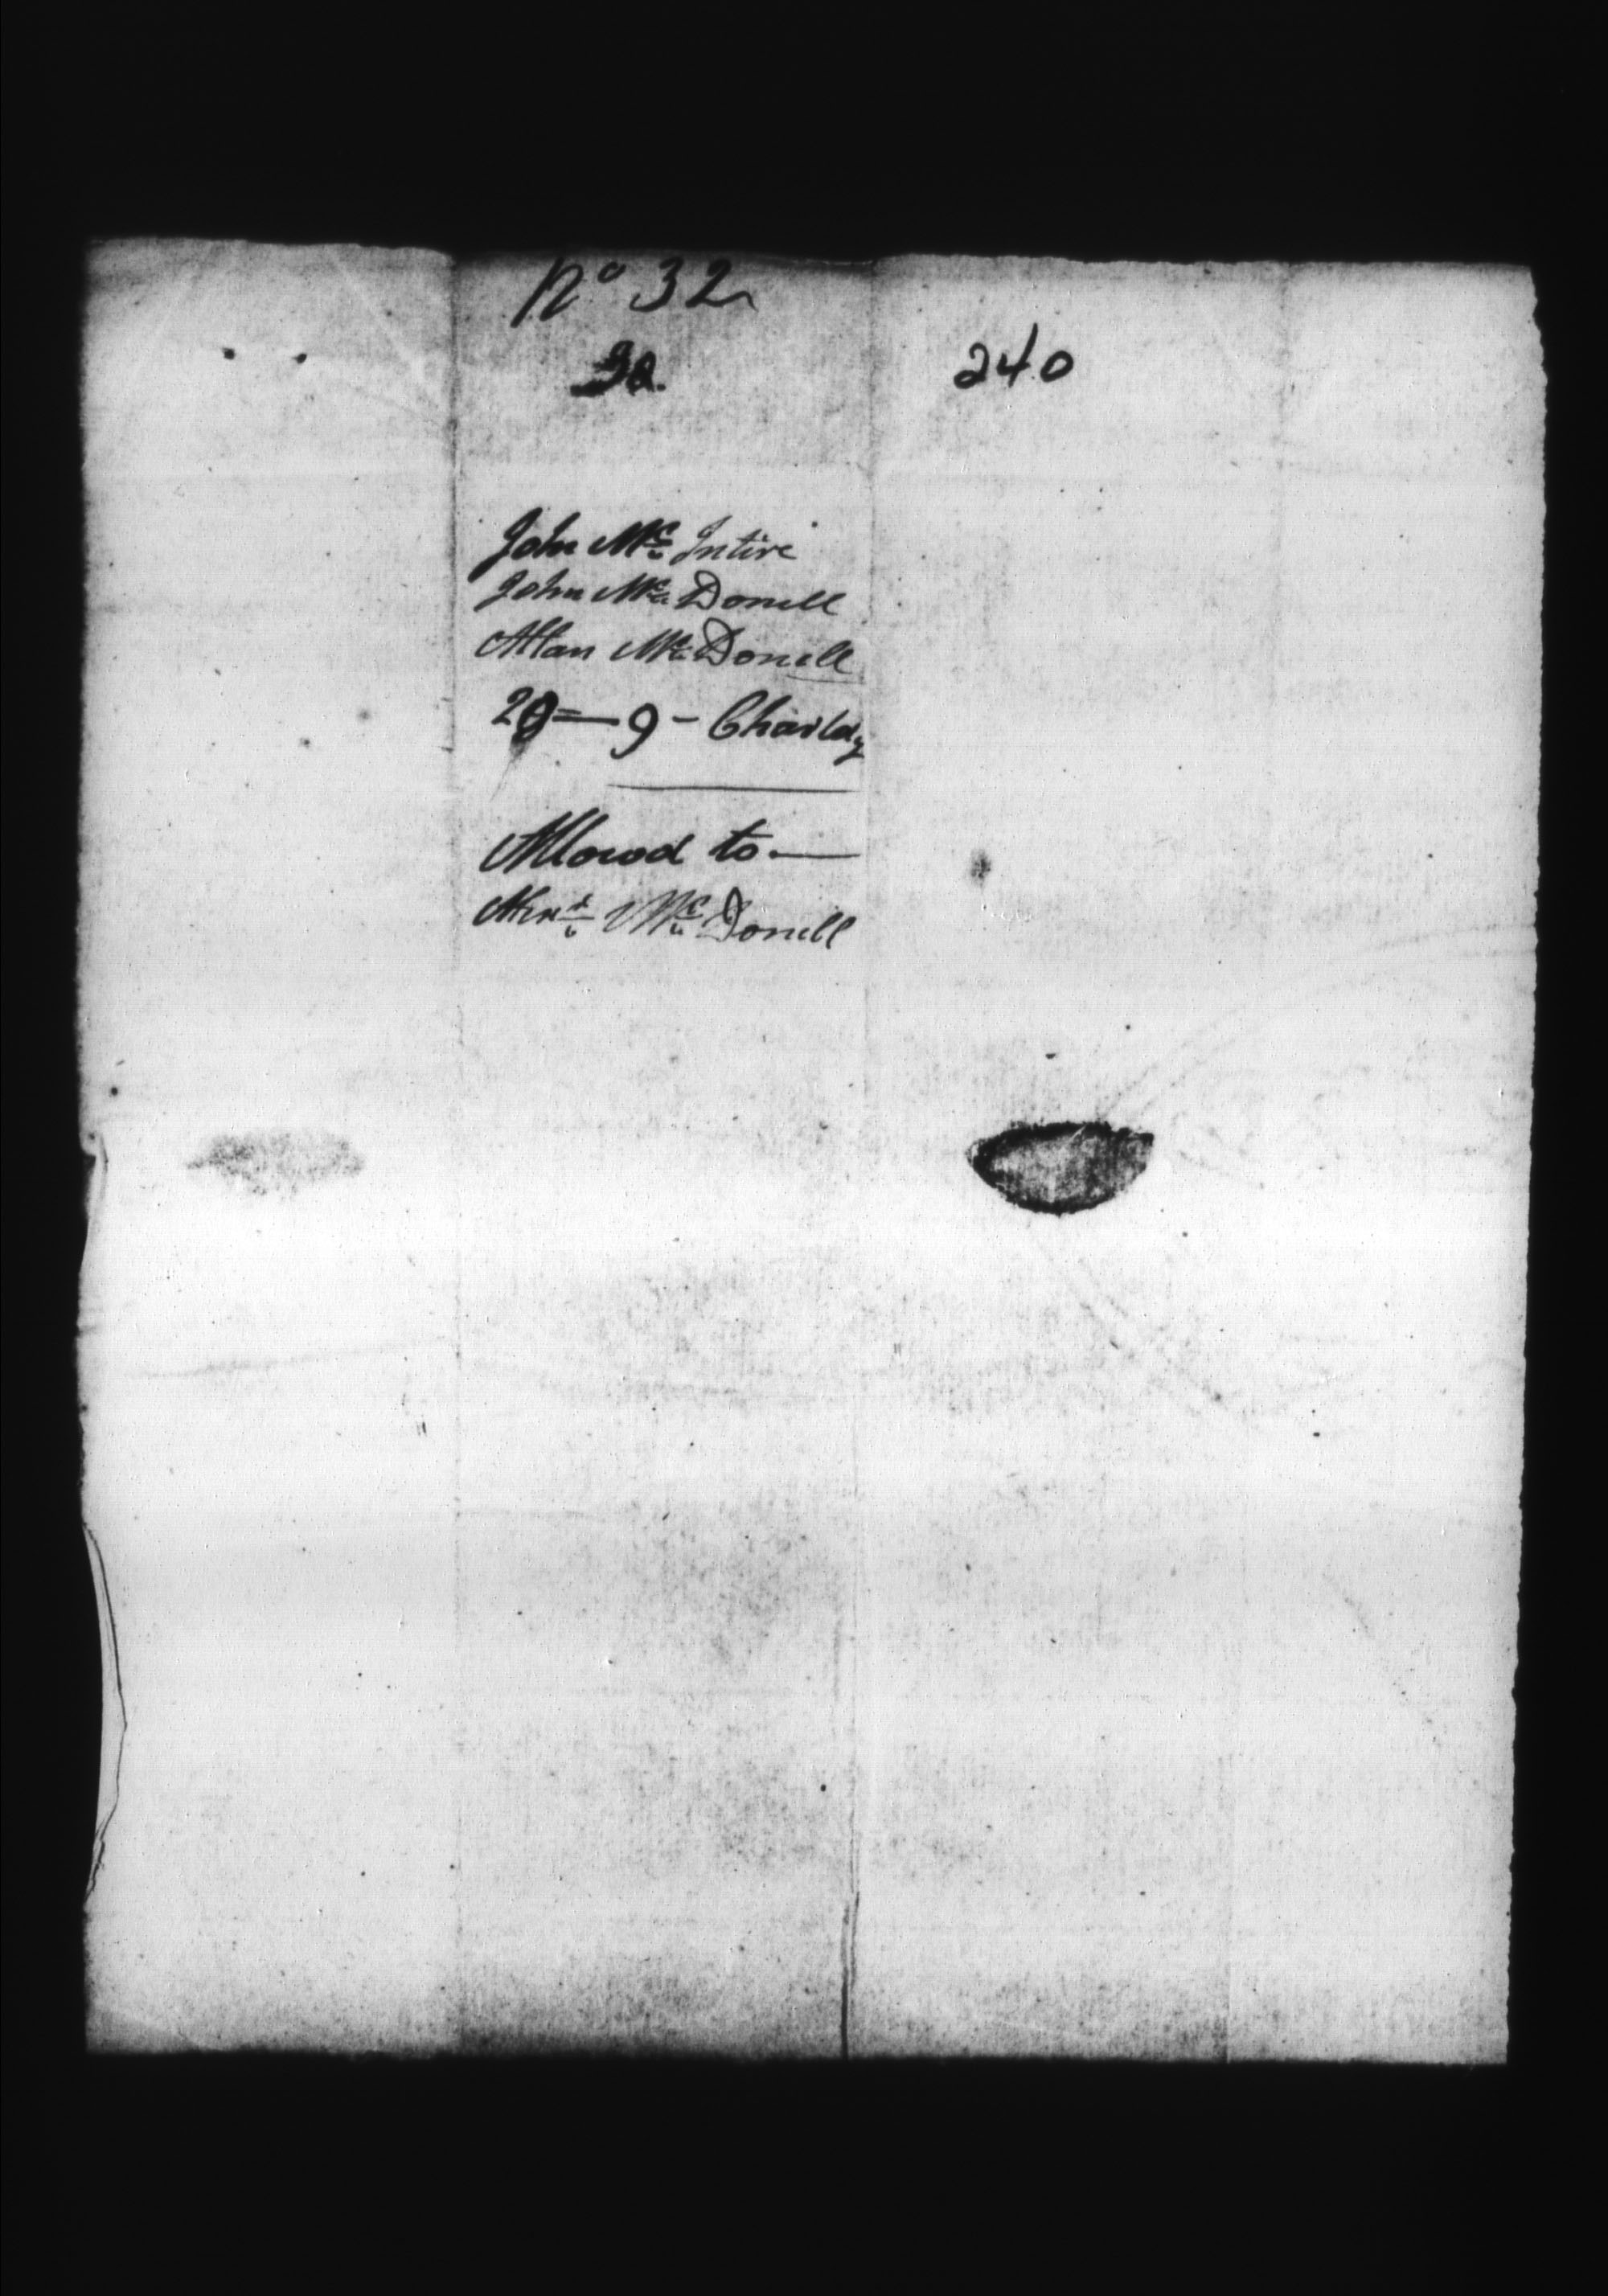 No 32
32.
240
John Mc Intire
John Mc Donell
Allan Mc Donell
20 = 9 -
Allowed to —
Alexr Mc Donell